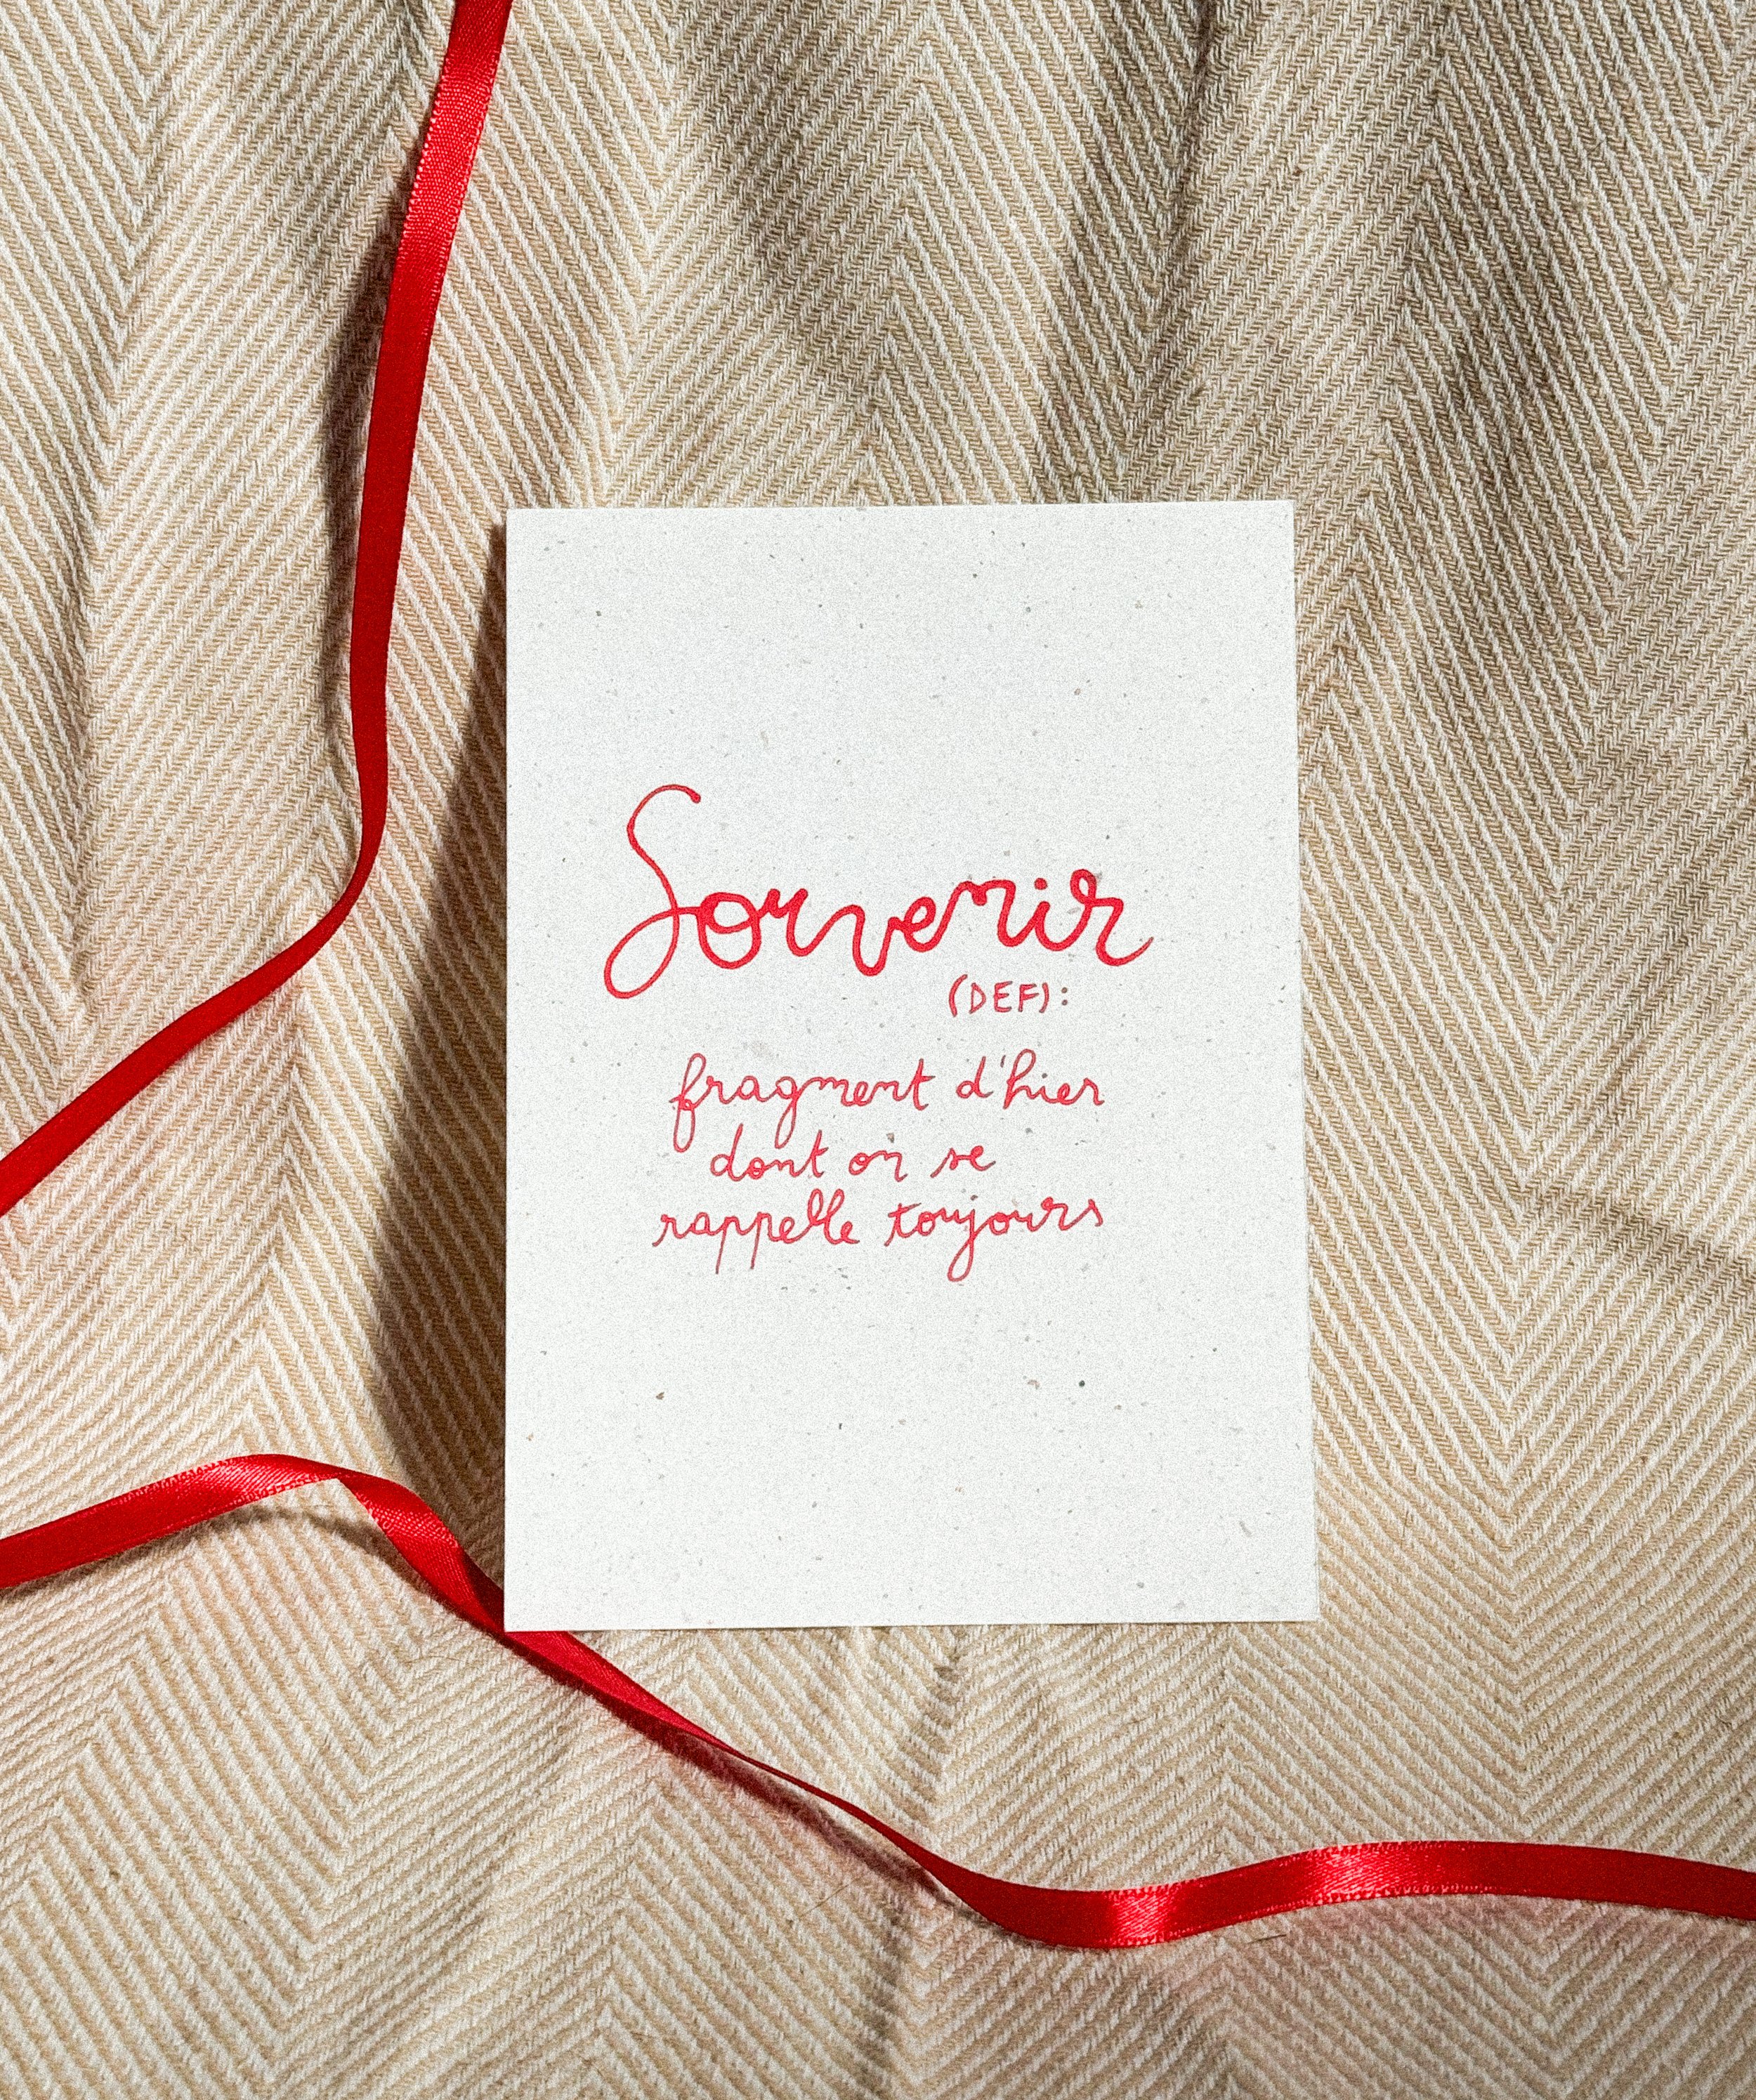 Souvenir
(DEF):
fragment d'hier
dont on se
rappelle toujours